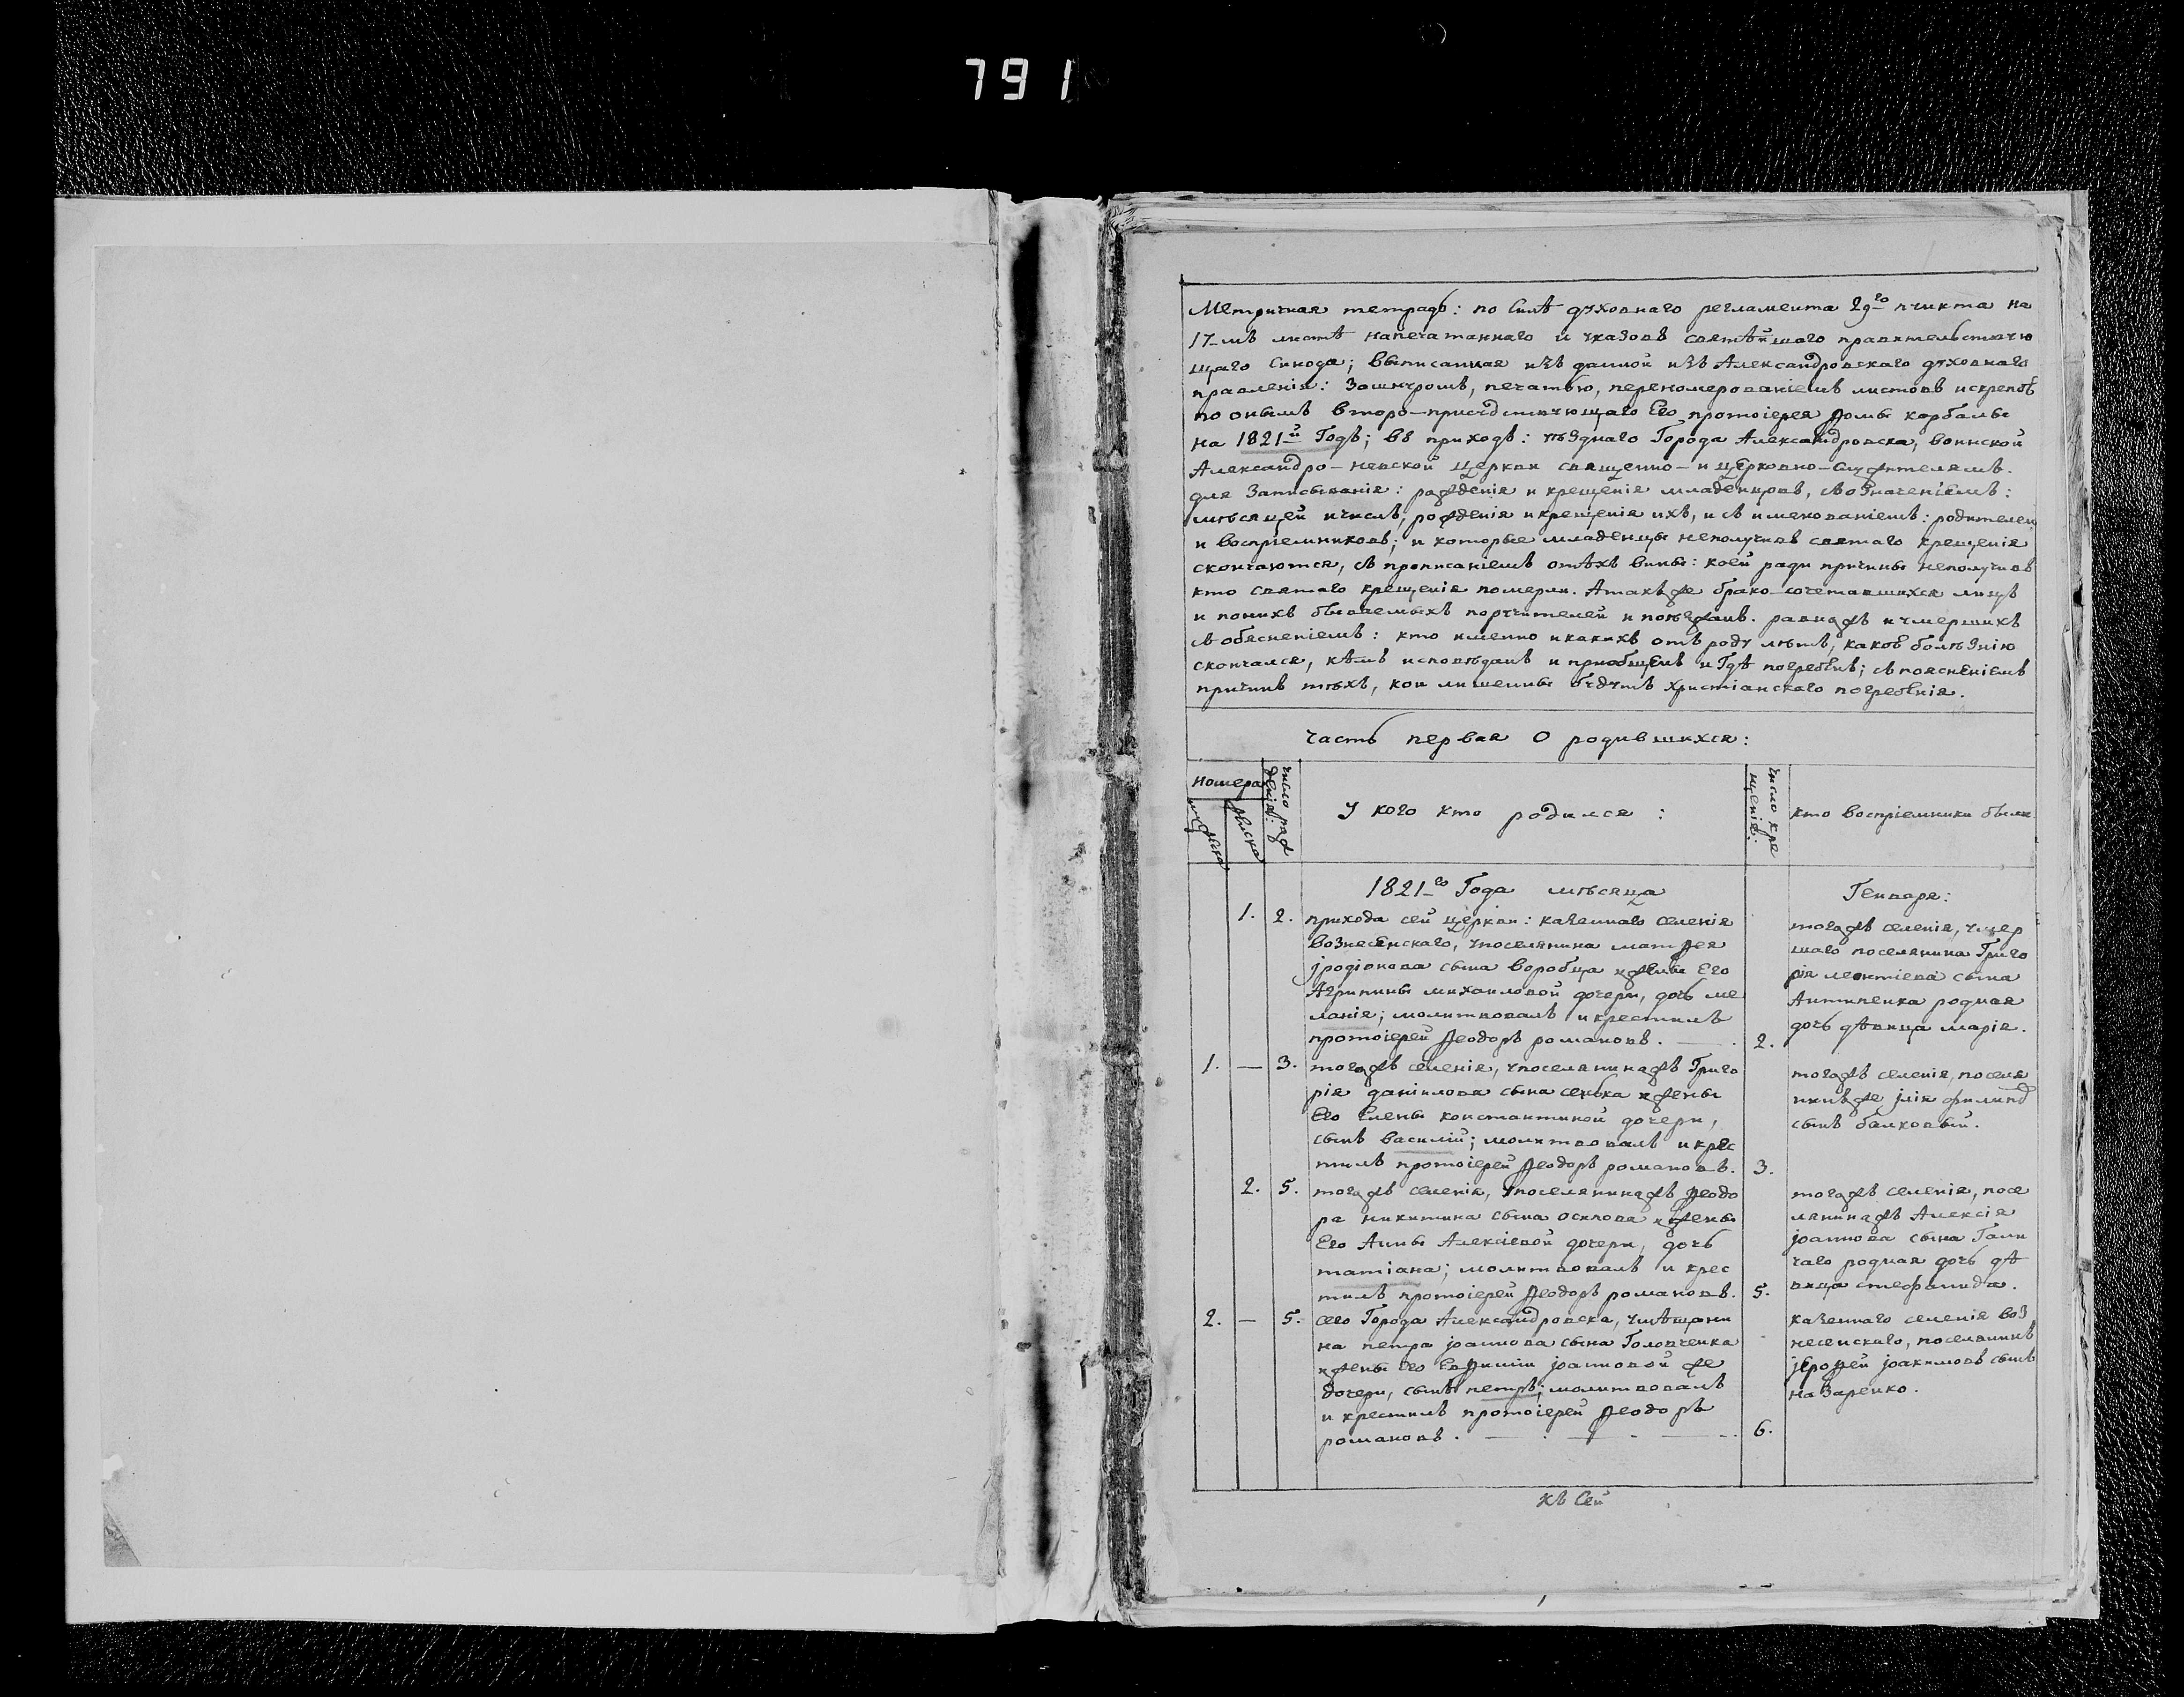 791
Метричная тетрадь: по силѣ духовнаго регламента 29го пункта на
17-мъ листѣ напечатаннаго и указовъ святѣйшаго правительствую
щаго Синода; выписанная изъ данной изъ Александровскаго духовнаго
правленія: за шнуромъ, печатью, перенумерованіемъ листовъ и скрепоѣ
по онымъ второ-присудствующаго Его протоіерея Ѳомы карбамы
на 1821й Годъ; въ приходъ: уѣзднаго Города Александровска, воинской
Александро-невской церкви священно- и церковно-служителямъ.
для Записыванія: раждѣнія и крещенія младенцовъ, съ означеніемъ:
мѣсяцей и числъ, рожденія и крещенія ихъ, и съ именованіемъ: родителей
и воспріемниковъ; и которые младенцы неполучивъ святаго крещенія
скончаются, съ прописаніемъ отѣхъ вины: коей ради причины неполучивъ
кто святаго крещенія померли. Атакъже брако-сочетавшихся лицъ
и понихъ бываемыхъ поручителей и поѣзжанъ. равнажъ и умершихъ
съ обясненіемъ: кто именно и какихъ отъ роду лѣтъ, какоѣ болѣзнію
скончался, кѣмъ исповѣданъ и приобщенъ и Гдѣ погребенъ; съ поясненіемъ
причинъ тѣхъ, кои лишенны будутъ христіанскаго погребенія.
часть первая О родившихся:
номера
мужеска
женска
число раж
денія:
У кого кто родился:
число кре
щенія:
кто воспріемники были
1821-го Года мѣсяца
Генваря:
1. 2. прихода сей церкви: казеннаго селенія
вознесенскаго, упоселянина матѳея
іродіонова сына воробца жены Его
Агрипины михаиловой дочери, дочь ме
ланія; молитвовалъ и крестилъ
протоіерей Ѳеодоръ романовъ. 2.
тогожъ селенія, умер
шаго поселянина Григо
рія леонтіева сына
Антипенка родная
дочь дѣвица марія.
1. — 3. тогожъ селенія, упоселянинажъ Григо
рія даніилова сына сенька жены
Его Елены константиной дочери,
сынъ василій; молитвовалъ и крес
тилъ протоіерей Ѳеодоръ романовъ. 3.
тогожъ селенія, поселя
нинъже ілія филипов
сынъ балковый.
2. 5. тогожъ селенія, упоселянинажъ Ѳеодо
ра никитина сына осипова жены
Его Анны Алексіевой дочери, дочь
татіана; молитвовалъ и крес
тилъ протоіерей Ѳеодоръ романовъ. 5.
тогожъ селенія, посе
лянинажъ Алексія
іоаннова сына Гали
чаго родная дочь дѣ
вица стефанида.
2. — 5. сего Города Александровска, умѣщани
на петра іоаннова сына Головченка
жены его Евѳиміи іоанновой же
дочери, сынъ петръ; молитвовалъ
и крестилъ протоіерей Ѳеодоръ
романовъ. 6.
казеннаго селенія воз
несенскаго, поселянинъ
іероѳей іоакимовъ сынъ
назаренко.
къ Сей
1